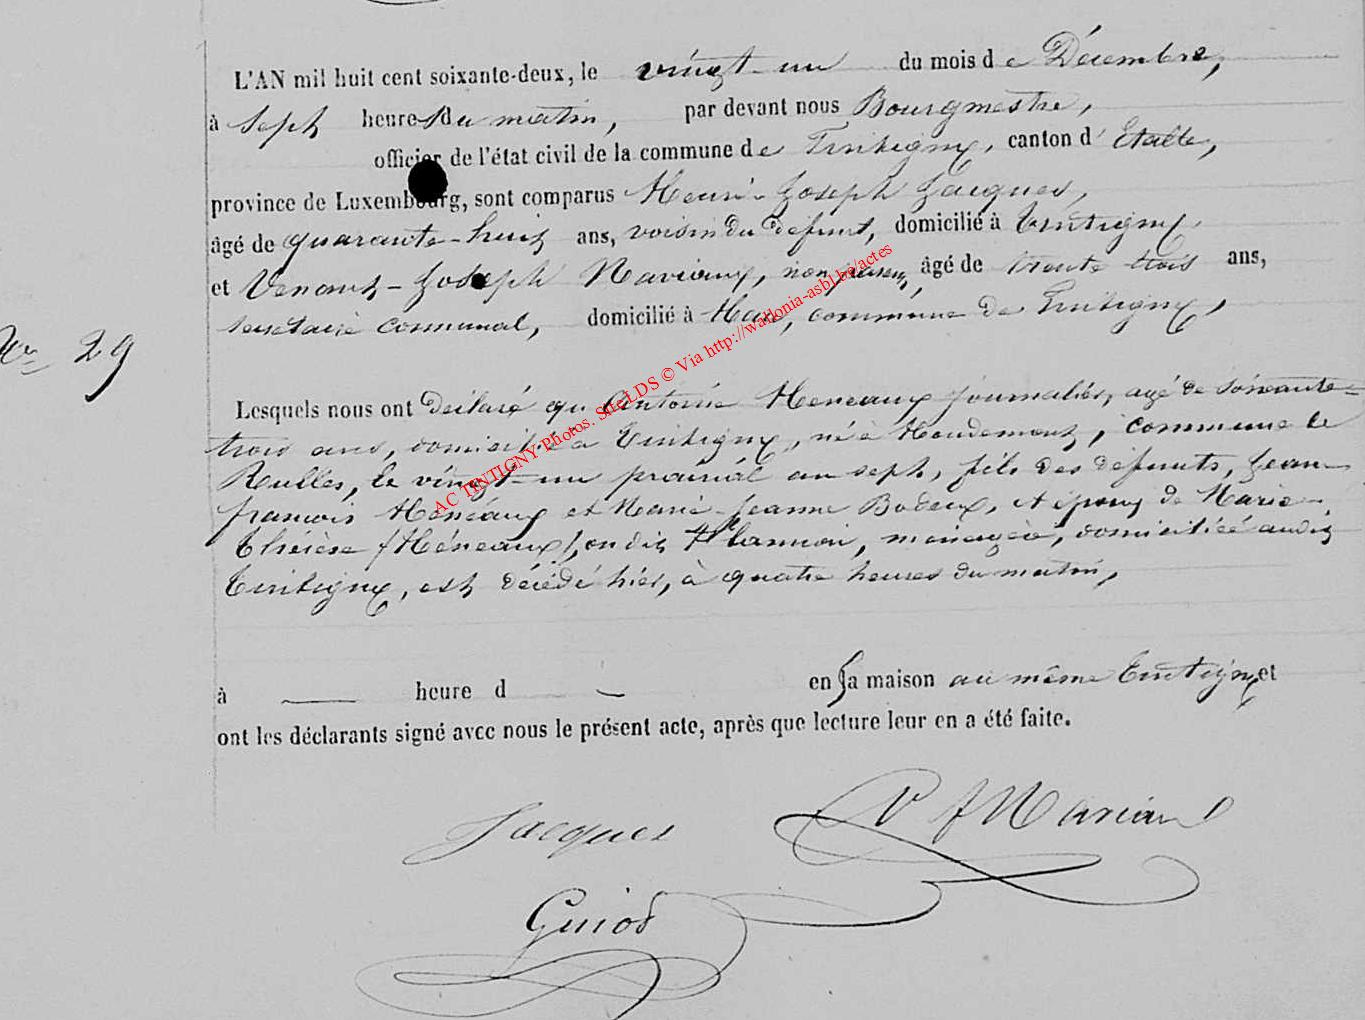 L'AN mil huit cent soixante-deux, le vingt-un du mois de Décembre,
à Sept heures du matin, par devant nous Bourgmestre,
officier de l'état civil de la commune de Tintigny, canton d'Etalle,
province de Luxembourg, sont comparus Henri-Joseph Jacques,
âgé de quarante-huit ans, voisin du défunt, domicilié à Tintigny,
et Venant-Joseph Naviaux, non parent, âgé de trente trois ans,
secrétaire communal, domicilié à Han, commune de Tintigny,
No 29
Lesquels nous ont déclaré qu'Antoine Heneaux journalier, agé de soixante-
trois ans, domicilié à Tintigny, né à Houdemont, commune de
Rulles, le vingt-un prairial an sept, fils des défunts, Jean-
françois Héneaux et Marie-Jeanne Bodeux, et époux de Marie-
Thérèse (Héneaux), on dit, ménagère, domiciliée audit
Tintigny, est décédé hier, à quatre heures du matin,
à — heure d — en sa maison au même Tintigny et
ont les déclarants signé avec nous le présent acte, après que lecture leur en a été faite.
Jacques
Guiot
AC TINTIGNY Photos. SheLDS © Via http://wallonia-asbl.be/actes